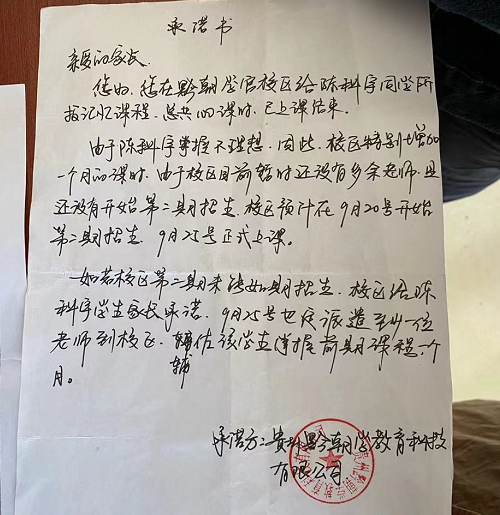 承诺书
亲爱的家长
您好，您在黔朝学官校区给陈科宇同学所
报记忆课程，总共10课时，已上课结束。
由于陈科宇掌握不理想，因此，校区特别增加
一个月的课时，由于校区目前暂时还没有多余老师，且
还没有开始第二期招生，校区预计在9月20号开始
第二期招生，9月25号正式上课。
如若校区第二期未能如期招生，校区给陈
科宇学生家长承诺，9月25号也定派遣至少一位
老师到校区，辅佐该学生掌握前期课程一个
辅
月。
承诺方：贵州黔朝学教育科技
有限公司